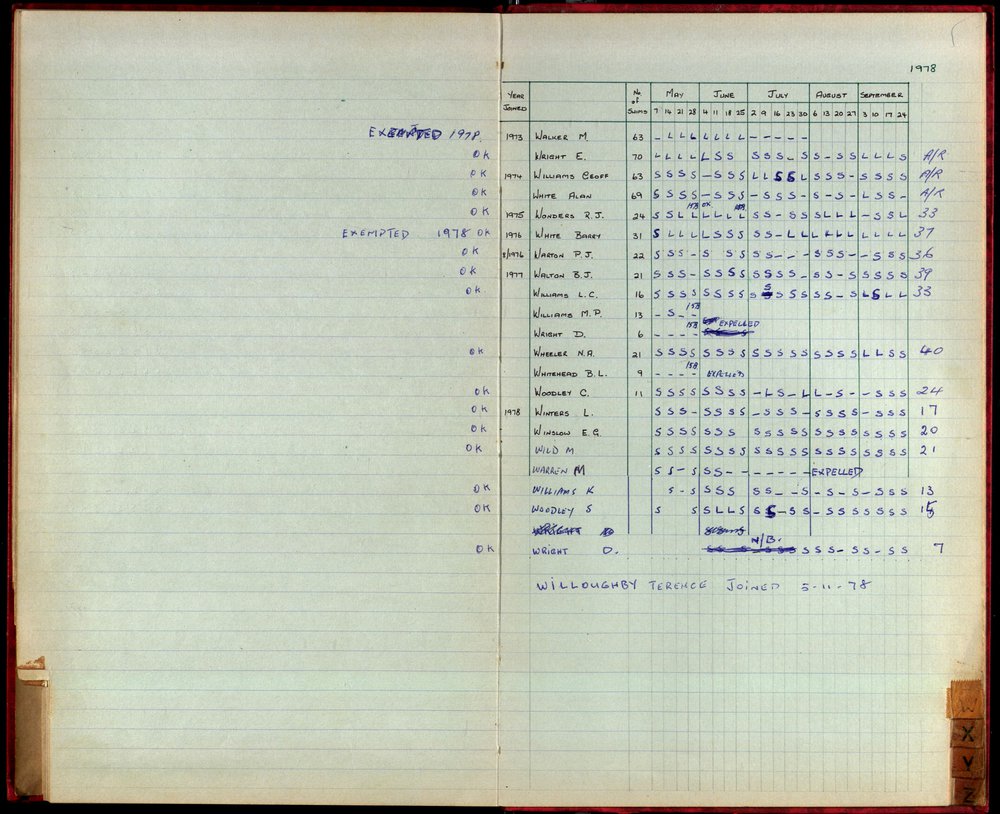 1978
YEAR JOINED No of SWIMS MAY JUNE JULY AUGUST SEPTEMBER
7 14 21 28 4 11 18 25 2 9 16 23 30 6 13 20 27 3 10 17 24
EXEMPTED 1978. 1973 WALKER M 63 - L L L L L L L - - - - -
OK WRIGHT E. 70 L L L L L S S S S S - S S - S S L L L S A/R
OK 1974 WILLIAMS GEOFF 63 S S S S - S S S L L S S L S S S - S S S S A/R
OK WHITE ALAN 69 S S S S - S S S - S S S - S - S - L S S - A/R
OK 1975 WONDERS R.J. 24 S S L L 15B OK L L L L S S - S S S L L L - S S L 33
EXEMPTED 1978 OK 1976 WHITE BARRY 31 S L L L L S S S S S - L L L L L L L L L L 37
OK 8/1976 WARTON P.J. 22 S S S - S S S S S - - - S S S - - S S S 36
OK 1977 WALTON B.J. 21 S S S - S S S S S S S S - S S - S S S S S 39
OK WILLIAMS L.C. 16 S S S S S S S S S S S S S S S - S L S L L 33
WILLIAMS M.P. 13 - S - - 15B
WRIGHT D. 6 - - - - 15B EXPELLED
OK WHEELER N.A. 21 S S S S S S S S S S S S S S S S S L L S S 40
WHITEHEAD B.L. 9 - - - - 15B EXPELLED
OK WOODLEY C. 11 S S S S S S S S - L S - L L - S - - S S S 24
OK 1978 WINTERS L. S S S - S S S S - S S S - S S S S - S S S 17
OK WINSLOW E.G. S S S S S S S S S S S S S S S S S S S S 20
OK WILD M S S S S S S S S S S S S S S S S S S S S S 21
WARREN M S S - S S S - - - - - - - EXPELLED
OK WILLIAMS K S - S S S S S S - - S - S - S - S S S 13
OK WOODLEY S S S S L L S S S - S S - S S S S S S S 15
N/B.
OK WRIGHT D. S S S S - S S - S S 7
WILLOUGHBY TERENCE JOINED 5-11-78
W
X
Y
Z